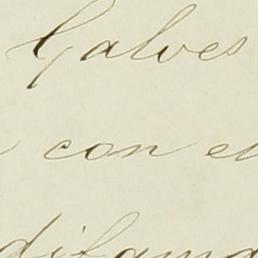 Galves
con el
difama